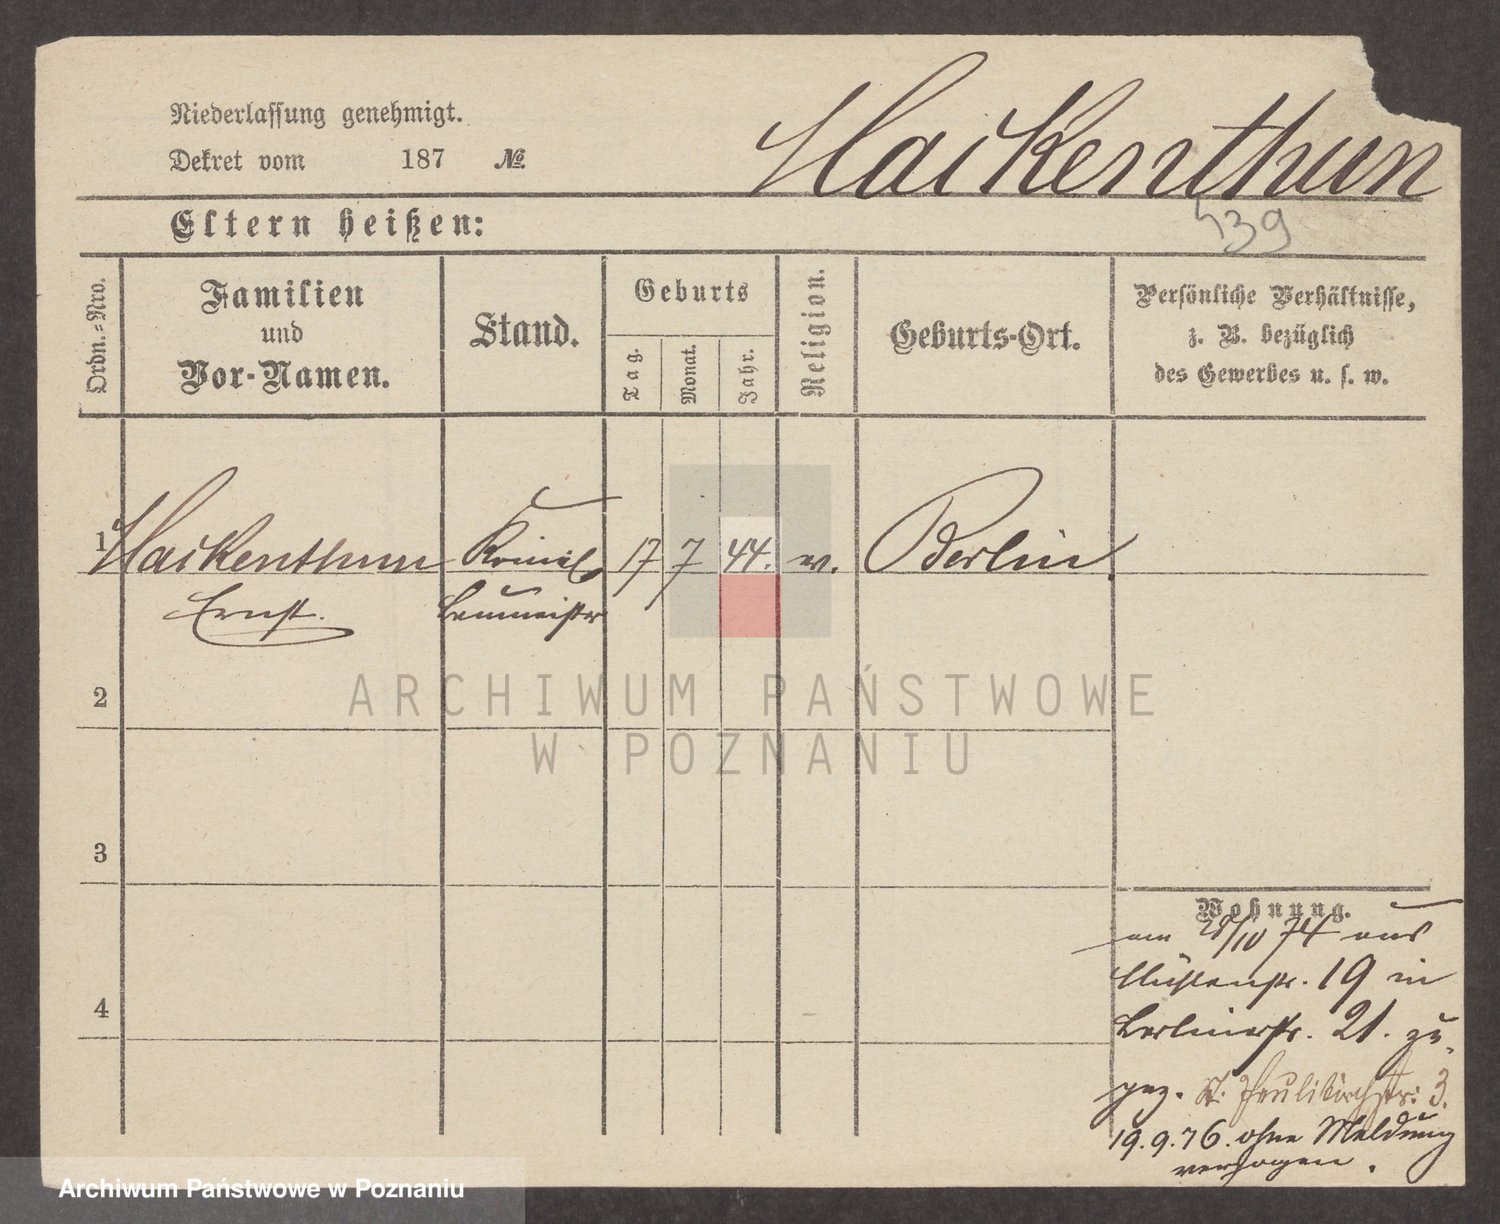 Niederlassung genehmigt.
Dekret vom 187 №
Hackenthun
Eltern heißen:
139
Ordn.=Nro.
Familien
und
Vor-Namen.
Stand.
Geburts
Tag.
Monat.
Jahr.
Religion.
Geburts-Ort.
Persönliche Verhältnisse,
z. B. bezüglich
des Gewerbes u. s. w.
1 Hackenthun 17 7 44. Berlin
Ernst. baumeister
ARCHIWUM PAŃSTWOWE
W POZNANIU
2
3
4
Wohnung.
am /10 74 aus
Mühlenstr. 19 in
Berlinerstr. 21. zu-
gez. St. Paulikirchstr: 3.
19.9.76. ohne Meldung
verzogen.
Archiwum Państwowe w Poznaniu